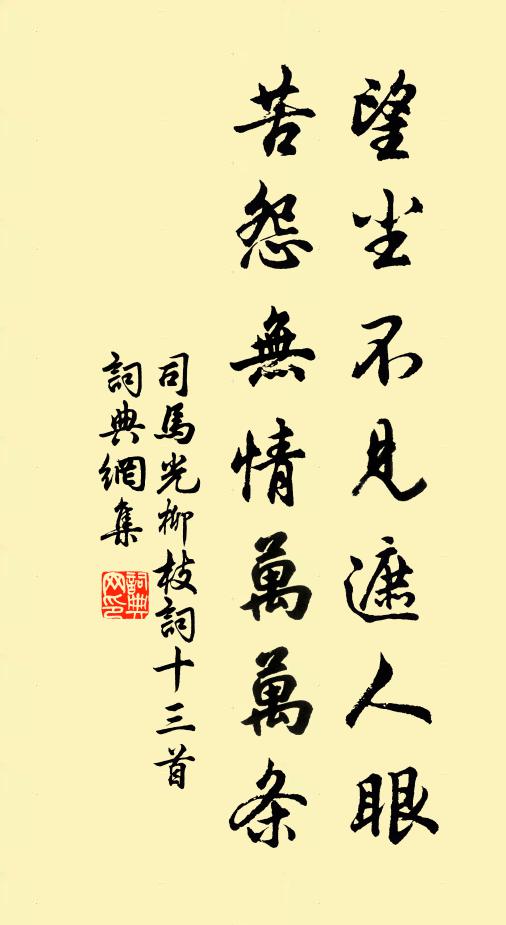 望尘不見遮人眼
苦怨無情萬萬条
司馬光柳枝詞十三首
詞典網集
詞典网印